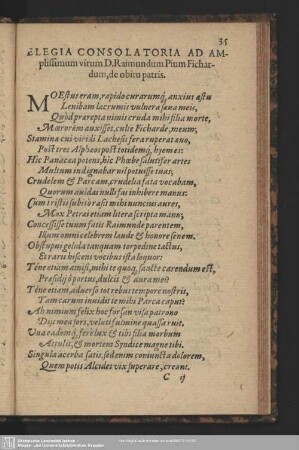 35
ELEGIA CONSOLATORIA AD AM-
plissimum virum D. Raimundum Pium Fichar-
dum, de obitu patris.
MOEstus eram, rapido curarumq; anxius æstu
Lenibam lacrumis vulnera sæua meis,
Quòd prærepta nimis cruda mihi filia morte,
Mœrorem auxisset, culte Ficharde, meum;
Stamina cui viridi Lachesis fera ruperat anno,
Post tres Alpheos post totidemq; hyemes:
Hic Panacea potens, hic Phœbe salutifer artes
Multum indignabar nil potuisse tuas;
Crudelem & Parcam, crudelia fata vocabam,
Quorum auidas nulli fas inhibere manus:
Cum tristis subitò rasit mihi nuncius aures,
Mox Petrei etiam litera scripta manu;
Concessisse tuum fatis Raimunde parentem,
Illum omni celebrem laude & honore senem.
Obstupui gelida tanquam torpedine tactus,
Et raris hiscens vocibus ista loquor:
Téne etiam amisi, mihi te quoq; sancte carendum est,
Præsidij ô portus, dulcis & aura mei?
Téne etiam, aduerso tot rebus tempore nostris,
Tam carum inuidit te mihi Parca caput?
Ah nimium felix hoc forsan visa patrono
Dijs mea sors, veluti fulmine quassa ruit.
Una eademq; fere lux & tibi filia morbum
Attulit, & mortem Syndice magne tibi.
Singula acerba satis, sed enim coniuncta dolorem,
Quem potis Alcides vix superare, creant.
C ij